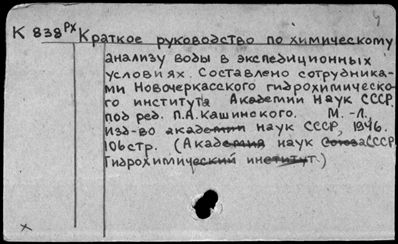 К 838 РХ Краткое руководство по химическому
анализу воды в экспедиционных
условиях. Составлено сотрудника-
ми Новочеркасского гидрохимическо-
го института Академии Наук СССР.
под ред. П.А. Кашинского. М. - Л.
Изд-во академии наук СССР, 1946.
106 стр. (Академия наук Союза СССР
Гидрохимический институт.)